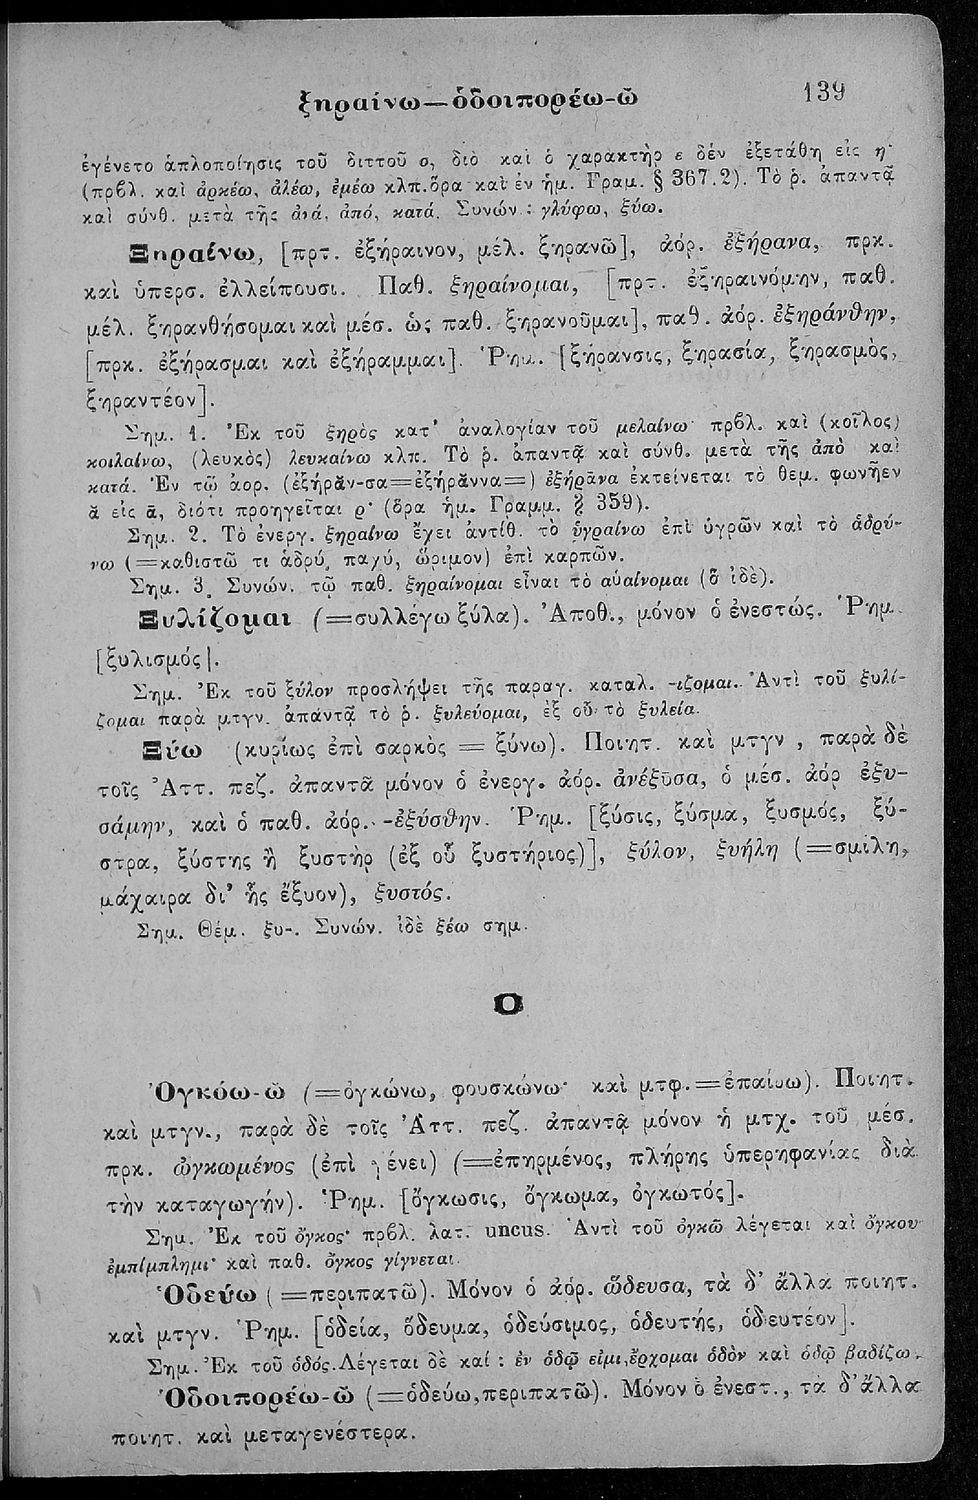 ξηραίνω—ὁδοιπορέω-ῶ 139
ἐγένετο ἁπλοποίησις τοῦ διττοῦ σ, διὸ καὶ ὁ χαρακτὴρ ε δὲν ἐξετάθη εἰς η·
(πρβλ. καὶ ἀρκέω, ἀλέω, ἐμέω κλπ. ὅρα καὶ ἐν ἡμ. Γραμ. § 367.2). Τὸ ῥ. ἀπαντᾷ
καὶ σύνθ. μετὰ τῆς ἀνά, ἀπό, κατά. Συνών.: γλύφω, ξύω.
Ξηραίνω, [πρτ. ἐξήραινον, μέλ. ξηρανῶ], ἀόρ. ἐξήρανα, πρκ.
καὶ ὑπερσ. ἐλλείπουσι. Παθ. ξηραίνομαι, [πρτ. ἐξηραινόμην, παθ.
μέλ. ξηρανθήσομαι καὶ μέσ. ὡς παθ. ξηρανοῦμαι], παθ. ἀόρ. ἐξηράνθην,
[πρκ. ἐξήρασμαι καὶ ἐξήραμμαι]. Ῥημ. [ξήρανσις, ξηρασία, ξηρασμὸς,
ξηραντέον].
Σημ. 1. Ἐκ τοῦ ξηρὸς κατ' ἀναλογίαν τοῦ μελαίνω· πρβλ. καὶ (κοῖλος)
κοιλαίνω, (λευκὸς) λευκαίνω κλπ. Τὸ ῥ. ἀπαντᾷ καὶ σύνθ. μετὰ τῆς ἀπὸ καὶ
κατά. Ἐν τῷ ἀορ. (ἐξήρᾰν-σα=ἐξήρᾰννα=) ἐξήρᾱνα ἐκτείνεται τὸ θεμ. φωνῆεν
ᾰ εἰς ᾱ, διότι προηγεῖται ρ· (ὅρα ἡμ. Γραμμ. § 359).
Σημ. 2. Τὸ ἐνεργ. ξηραίνω ἔχει ἀντίθ. τὸ ὑγραίνω ἐπὶ ὑγρῶν καὶ τὸ ἁδρύ-
νω (=καθιστῶ τι ἁδρύ, παχύ, ὥριμον) ἐπὶ καρπῶν.
Σημ. 3. Συνών. τῷ παθ. ξηραίνομαι εἶναι τὸ αὐαίνομαι (ὃ ἰδὲ).
Ξυλίζομαι (=συλλέγω ξύλα). Ἀποθ., μόνον ὁ ἐνεστώς. Ῥημ.
[ξυλισμός].
Σημ. Ἐκ τοῦ ξύλον προσλήψει τῆς παραγ. καταλ. -ιζομαι. Ἀντὶ τοῦ ξυλί-
ζομαι παρὰ μτγν. ἀπαντᾷ τὸ ῥ. ξυλεύομαι, ἐξ οὗ τὸ ξυλεία.
Ξύω (κυρίως ἐπὶ σαρκὸς = ξύνω). Ποιητ. καὶ μτγν, παρὰ δὲ
τοῖς Ἀττ. πεζ. ἀπαντᾶ μόνον ὁ ἐνεργ. ἀόρ. ἀνέξῦσα, ὁ μέσ. ἀόρ ἐξυ-
σάμην, καὶ ὁ παθ. ἀόρ. -ἐξύσθην. Ῥημ. [ξύσις, ξύσμα, ξυσμός, ξύ-
στρα, ξύστης ἢ ξυστὴρ (ἐξ οὗ ξυστήριος)], ξύλον, ξυήλη (=σμίλη,
μάχαιρα δι' ἧς ἔξυον), ξυστός.
Σημ. Θέμ. ξυ-. Συνών. ἰδὲ ξέω σημ.
Ο
Ὀγκόω-ῶ (=ὀγκώνω, φουσκώνω· καὶ μτφ.=ἐπαίρω). Ποιητ.
καὶ μτγν., παρὰ δὲ τοῖς Ἀττ. πεζ. ἀπαντᾷ μόνον ἡ μτχ. τοῦ μέσ.
πρκ. ὠγκωμένος (ἐπὶ γένει) (=ἐπηρμένος, πλήρης ὑπερηφανίας διὰ
τὴν καταγωγήν). Ῥημ. [ὄγκωσις, ὄγκωμα, ὀγκωτός].
Σημ. Ἐκ τοῦ ὄγκος· πρβλ. λατ. uncus. Ἀντὶ τοῦ ὀγκῶ λέγεται καὶ ὄγκου
ἐμπίμπλημι· καὶ παθ. ὄγκος γίγνεται.
Ὁδεύω (=περιπατῶ). Μόνον ὁ ἀόρ. ὥδευσα, τὰ δ' ἄλλα ποιητ.
καὶ μτγν. Ῥημ. [ὁδεία, ὅδευμα, ὁδεύσιμος, ὁδευτής, ὁδευτέον].
Σημ. Ἐκ τοῦ ὁδός. Λέγεται δὲ καί : ἐν ὁδῷ εἰμι, ἔρχομαι ὁδὸν καὶ ὁδῷ βαδίζω.
Ὁδοιπορέω-ῶ (=ὁδεύω, περιπατῶ). Μόνον ὁ ἐνεστ., τὰ δ' ἄλλα
ποιητ. καὶ μεταγενέστερα.